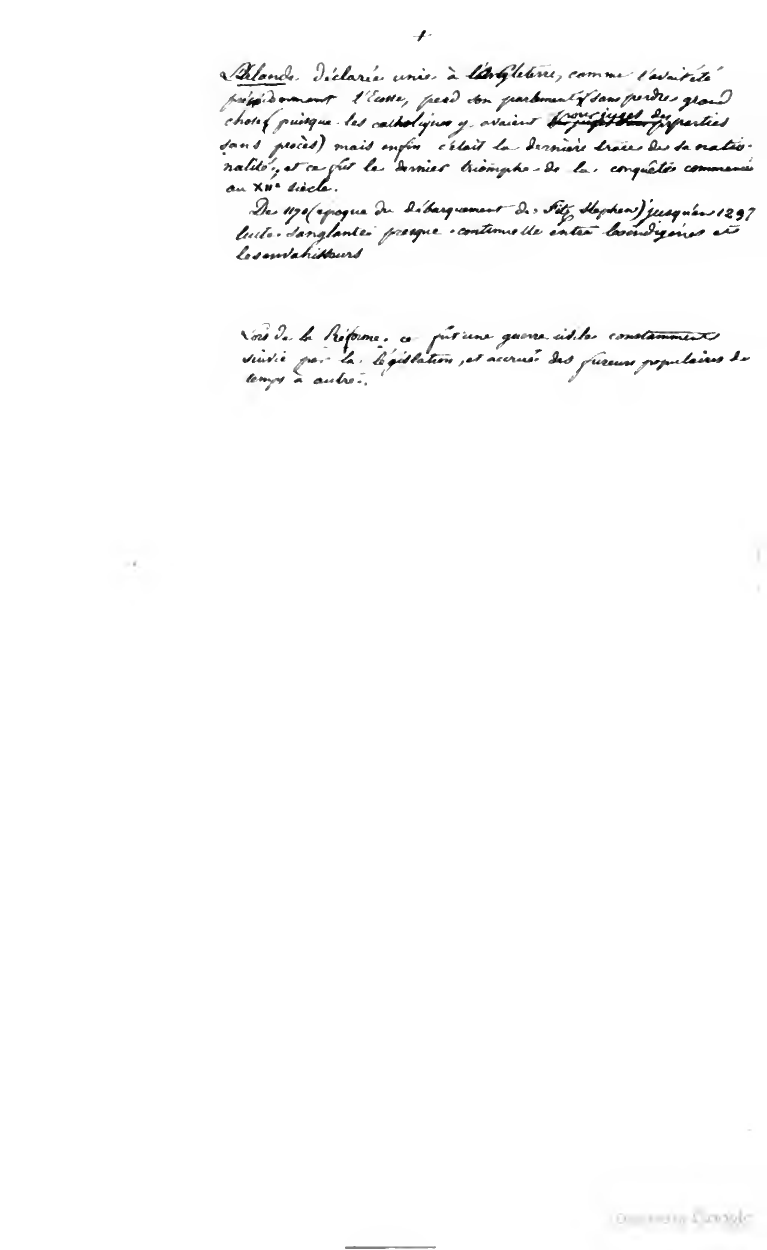 4
L'Irlande déclarée unie à l'Angleterre, comme l'avait été
précédemment l'Ecosse, perd son parlement (sans perdre grand
chose, puisque les catholiques y avaient pour juges des parties
sans procès) mais enfin c'était la dernière trace de sa natio-
nalité, et ce fut le dernier triomphe de la conquête commencée
au XIIe siècle.
De 1170 (époque du débarquement de Fitz Stephen) jusqu'en 1297
lutte sanglante presque continuelle entre les indigènes et
les envahisseurs
Lors de la Réforme, ce fut une guerre civile constamment
suivie par la législation, et accrue des fureurs populaires de
temps à autre.